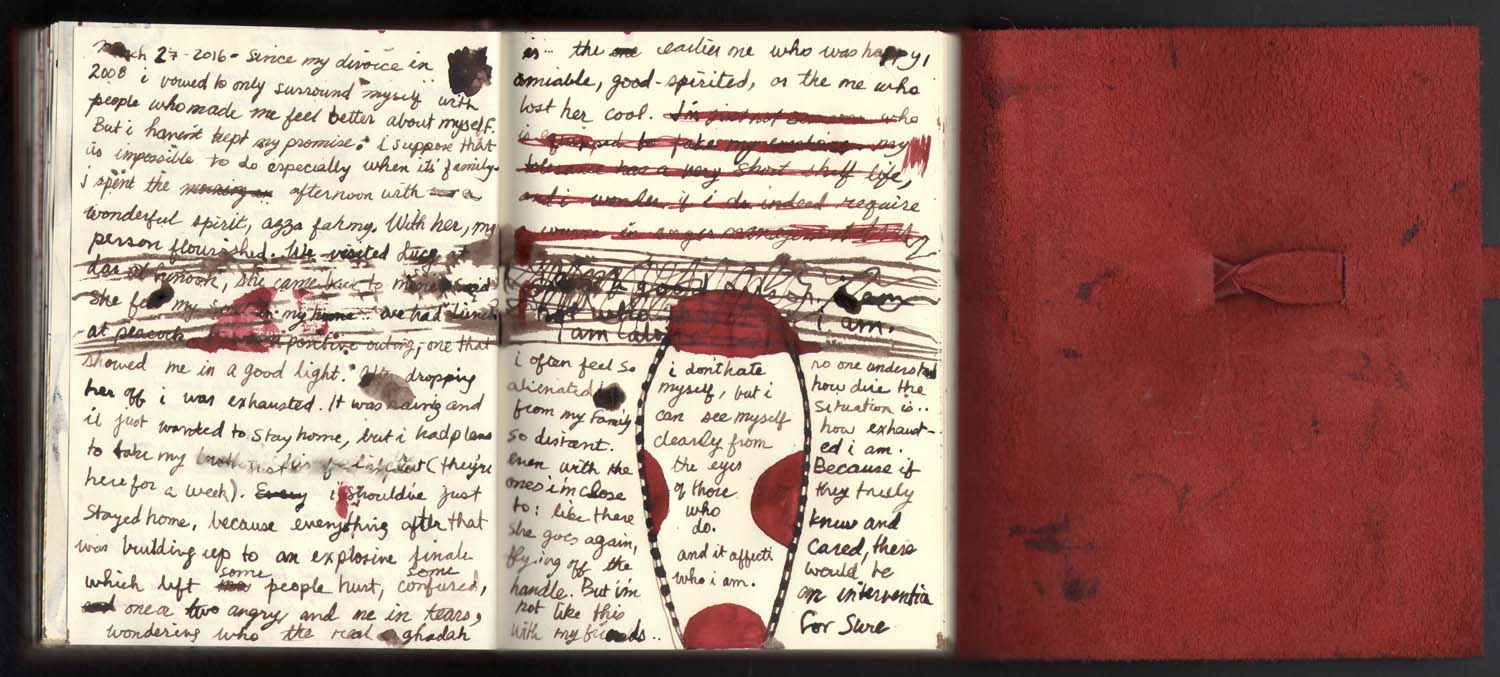 march 27 - 2016 - Since my divorce in
2008 i vowed to only surround myself with
people who made me feel better about myself.
But i haven't kept my promise. i suppose that
its impossible to do especially when it's family.
I spent the afternoon with a
wonderful spirit, azza fahmy. With her, my
person flourished. We visited Lucy at
dar al funoon, she came back to
she my in my home .. we had lunch
at peacock positive outing, one that
showed me in a good light. After dropping
her off i was exhausted. It was raining and
i just wanted to stay home, but i had plans
to take my (they're
here for a week). Every i should've just
stayed home, because everything after that
was building up to an explosive finale
which left some people hurt, some confused,
one a two angry and me in tears,
wondering who the real ghadah
is .. the one earlier me who was happy,
amiable, good-spirited, or the me who
lost her cool. I'm just not someone who
is equipped to fake my emotions. my
tolerance has a very short shelf life,
and i wonder if i do indeed require
a course in anger management
a good I am
not who i am.
I am
i often feel so
alienated
from my family
so distant.
even with the
ones i'm close
to: like there
she goes again,
flying off the
handle. But i'm
not like this
with my friends ..
i don't hate
myself, but i
can see myself
clearly from
the eyes
of those
who
do.
and it affects
who i am.
no one understands
how dire the
situation is ..
how exhaust-
ed i am.
Because if
they truely
knew and
cared, there
would be
an intervention
for sure